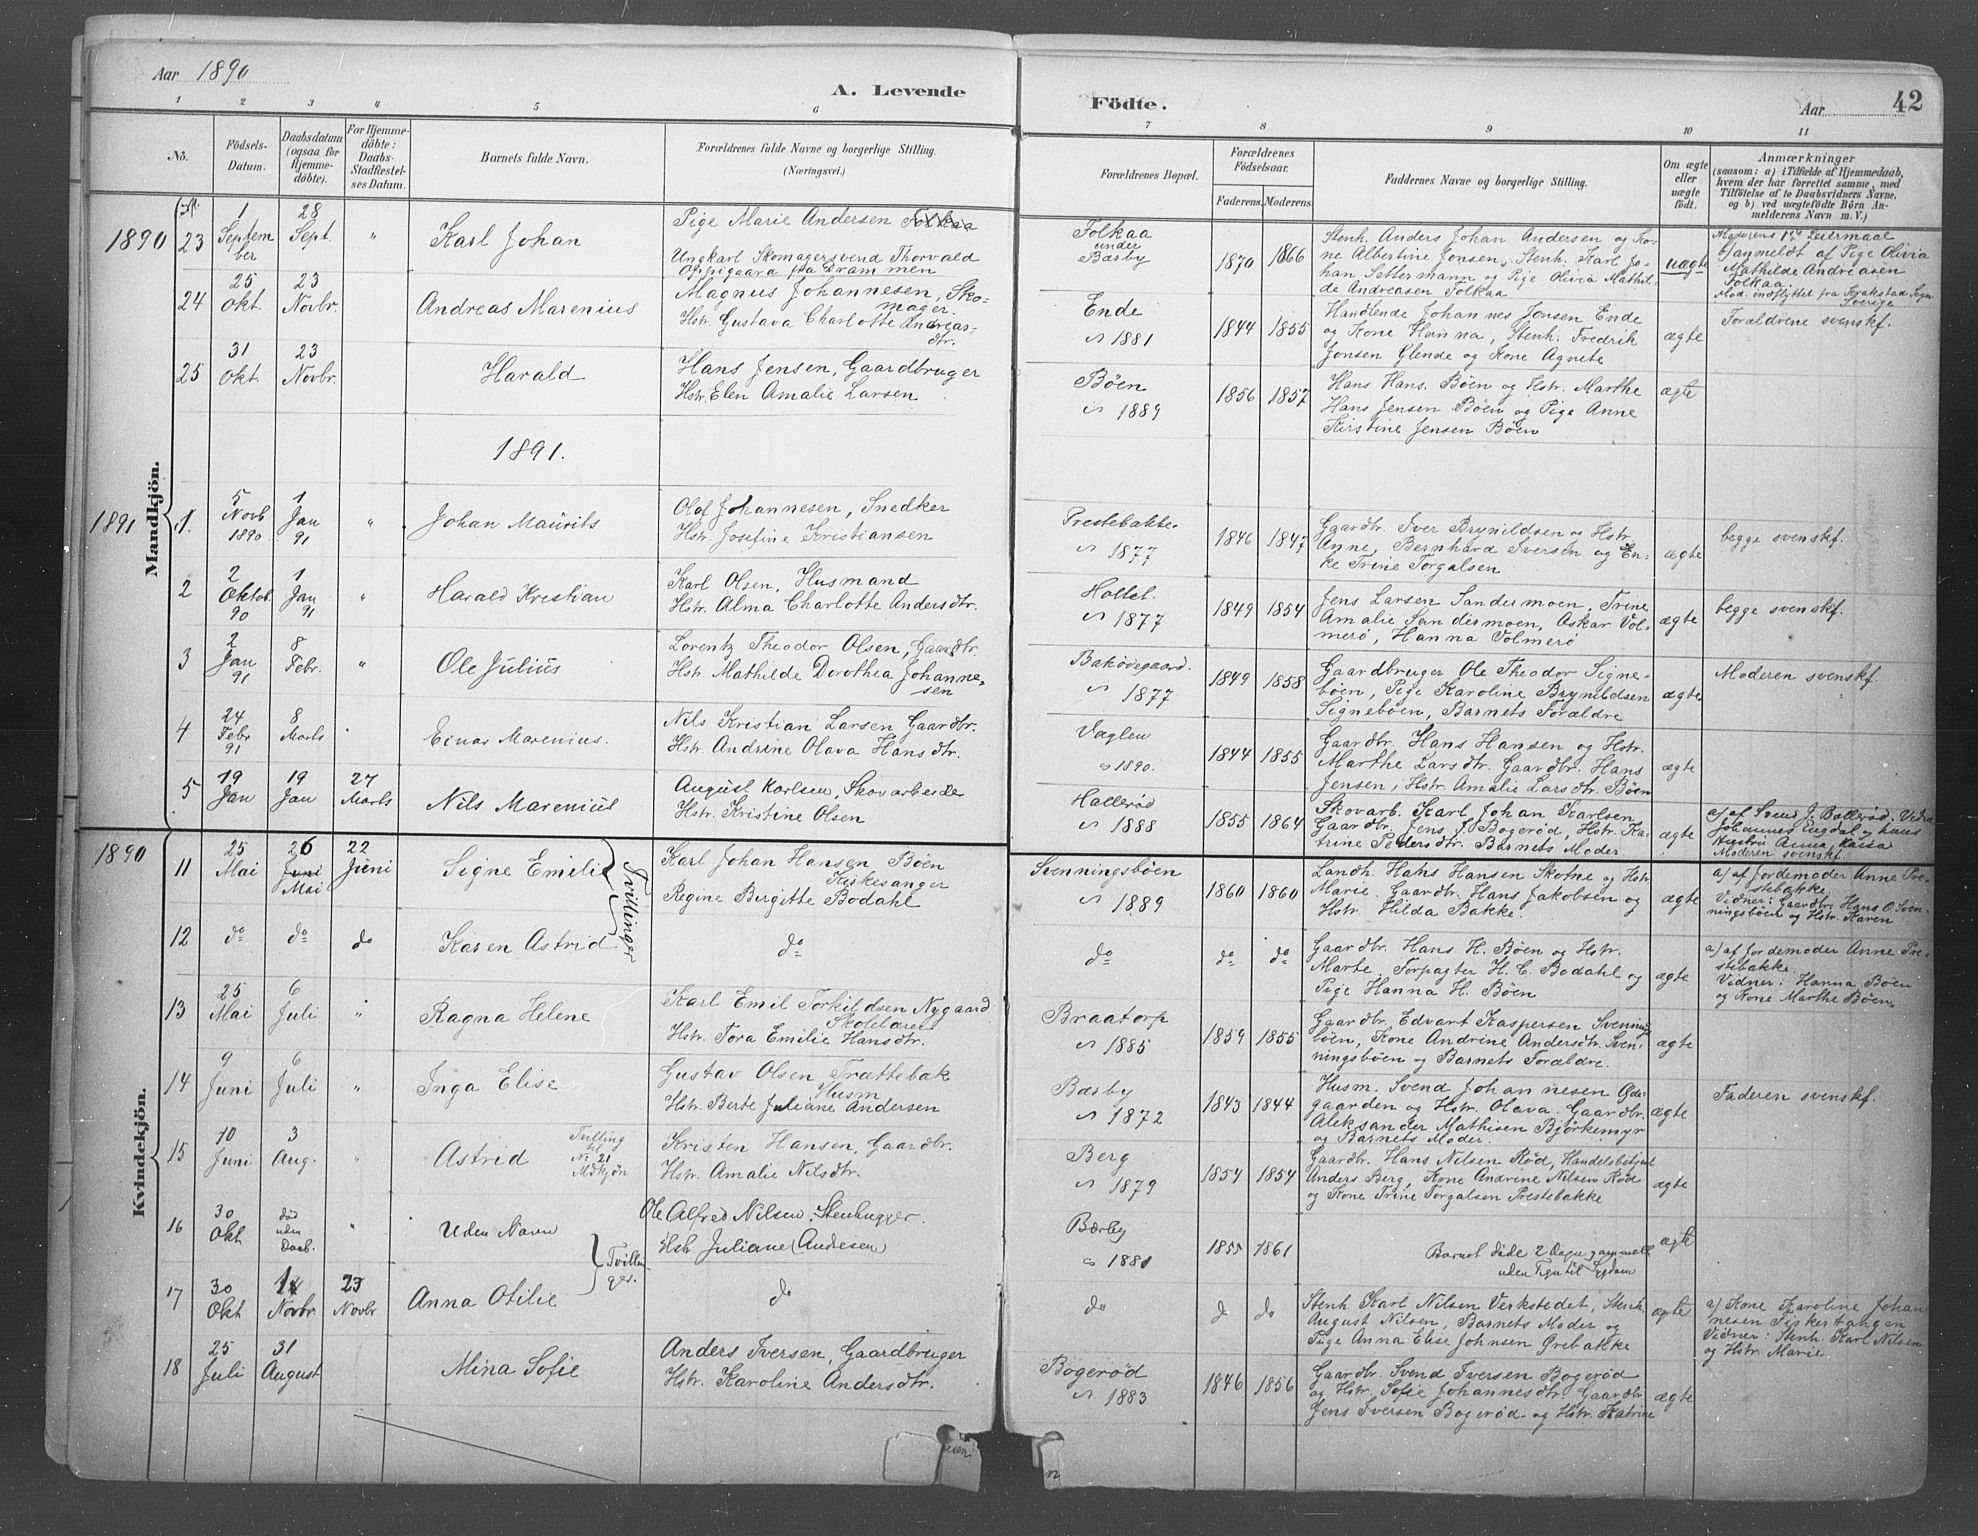 Aar 1890
A. Levende Födte.
Aar
42
1 2 3 4 5 6 7 8 9 10 11
No.
Födsels-Datum.
Daabsdatum (ogsaa for Hjemme-döbte).
For Hjemme-döbte: Daabs-Stadfæstel-ses Datum.
Barnets fulde Navn.
Forældrenes fulde Navne og borgerlige Stilling.
(Næringsvei.)
Forældrenes Bopæl.
Forældrenes Födselsaar.
Faderens. Moderens.
Faddernes Navne og borgerlige Stilling.
Om ægte eller uægte födt.
Anmærkninger
(saasom: a) i Tilfælde af Hjemmedaab,
hvem der har forrettet samme, med
Tilföielse af to Daabsvidners Navne,
og b) ved uægtefödte Börn An-
melderens Navn m. V.)
Mandkjön.
1890
23
1 September
28 Sept.
"
Karl Johan
Pige Marie Andersen Folkaa
Ungkarl Skomagersvend Thorvald
Oppigaard fra Drammen
Folkaa
under
Bærby
1870
1866
Stenh. Anders Johan Andersen og Ko-
ne Albertine Jonsen, Stenh. Karl Jo-
han Settermann og Pige Olivia Mathil-
de Andreasen Folkaa
uægte
Moderens 1ste Leiermaal
b) anmeldt af Pige Olivia
Mathilde Andreasen
Folkaa.
Mod. indflyttet fra Skrakstad Sogn
Sverige
24
25 Okt.
23 Novbr.
Andreas Marenius
Magnus Johannesen, Sko-
mager.
Hstr. Gustava Charlotte Andreas-
dtr.
Ende
1881
1844
1855
Johannes Jonsen Ende
og Kone Hanna, Stenh. Fredrik
Jonsen Glende og Kone Agnete
ægte
Forældrene svenskf.
25
31 Okt.
23 Novbr.
Harald
Hans Jensen, Gaardbruger
Hstr. Elen Amalie Larsen
Böen
1889
1856
1857
Hans Hans. Böen og Hstr. Marthe
Hans Jensen Böen og Pige Anne
Kirstine Jensen Böen
ægte
1891.
1891
1.
5 Novb 1890
1 Jan 91
"
Johan Maurits
Olof Johannesen, Snedker
Hstr. Josefine Kristiansen
Prestebakke.
1877
1846
1847
Gaardbr. Iver Brynildsen og Hstr.
Anne, Bernhard Iversen og En-
ke Trine Torgalsen
ægte
begge svenskf.
2
2 Oktob. 90
1 Jan 91
"
Harald Kristian
Karl Olsen, Husmand
Hstr. Alma Charlotte Andersdtr.
Hollet.
1877
1849
1854
Jens Larsen Sandermoen, Trine
Amalie Sandermoen, Askar Vol-
merö, Hanna Volmerö
ægte
begge svenskf.
3
2 Jan 91
8 Febr.
"
Ole Julius
Lorentz Theodor Olsen, Gaardbr.
Hstr. Mathilde Dorothea Johanne-
sen
Baködegaard.
1877
1849
1858
Gaardbruger Ole Theodor Signe-
böen, Pige Karoline Brynildsen
Signeböen, Barnets Forældre
ægte
Moderen svenskf.
4
24 Febr 91
8 Marts
Einar Marenius.
Nils Kristian Larsen Gaardbr.
Hstr. Andrine Olava Hansdtr.
Vaglen
1890.
1844
1855
Gaardbr. Hans Hansen og Hstr.
Marthe Larsdtr. Gaardbr. Hans
Jensen, Hstr. Amalie Larsdtr. Böen
ægte
5
19 Jan
19 Jan
27 Marts
Nils Marenius
August Karlsen, Skovarbeider
Hstr. Kristine Olsen
Halleröd
1888
1855
1864
Skovarb. Karl Johan Karlsen
Gaardbr. Jens J. Bogeröd, Hstr. Ka-
trine Pedersdtr. Barnets Moder
ægte
Johannes Engdal og hans
Hustru Anna Kaisa
Moderen svenskf.
Kvindekjön.
1890
11
25 Mai
26 Juni Mai
22 Juni
Signe Emilie
Tvillinger
Karl Johan Hansen Böen
Kirkesanger
Regine Birgitte Bodahl
Svenningsböen
1889
1860
1860
Landh. Hans Hansen Skotne og Hstr
Marie. Gaardbr. Hans Jakobsen og
Hstr. Hilda Bakke.
ægte
a) af Jordemoder Anne Pre-
stebakke
Vidner: Gaardbr. Hans O. Sven-
ningsböen og Hstr. Karen
12
do
do
do
Karen Astrid
do
do
do
do
Gaardbr. Hans H. Böen og Hstr.
Marte. Forpagter H. C. Bodahl og
Pige Hanna H. Böen
ægte
a) af Jordemoder Anne Pre-
stebakke.
Vidner: Hanna Böen
og Kone Marthe Böen
13
25 Mai
6 Juli
"
Ragna Helene
Karl Emil Torkildsen Nygaard
Skolelærer
Hstr. Tora Emilie Hansdtr.
Braatorp
1885
1859
1855
Gaardbr. Edvart Kaspersen Svennings-
böen, Kone Andrine Andersdtr. Sven-
ningsböen og Barnets Forældre.
ægte
14
9 Juni
6 Juli
"
Inga Elise
Gustav Olsen Trættebak
Husm
Hstr. Berte Juliane Andersen
Bærby
1872
1843
1844
Husm. Svend Johannesen Öde-
gaarden og Hstr. Olava. Gaardbr.
Aleksander Mathisen Björkemyr
og Barnets Moder.
ægte
Faderen svenskf.
15
10 Juni
3 Aug.
"
Astrid
Tvilling
til
No 21
Mdkjön
Kristen Hansen, Gaardbr.
Hstr. Amalie Nilsdtr.
Berg
1879
1854
1854
Gaardbr. Hans Nilsen Röd, Handelsbetjent
Anders Berg, Kone Andrine Nilsen Röd
og Kone Trine Torgalsen Prestebakke
ægte
16
30 Okt
död uden Daab.
"
Uden Navn
Tvillin-
ger.
Ole Alfred Nilsen, Stenhugger.
Hstr Juliane (Andresen)
Bærby
1881
1855
1861
Barnet döde 2 Dage gammelt
uden Tegn til Sygdom
ægte
17
30 Okt
Novbr
23 Novbr
Anna Otilie
do
do
do
do
Stenh. Karl Nilsen Verkstedet, Stenh.
August Nilsen, Barnets Moder og
Pige Anna Elise Johnsen Grebakke
ægte
a) Kone Karoline Johan
nesen Fiskertangen
Vidner: Stenh. Karl Nilsen
og Hstr. Marie
18
25 Juli
31 August
Mina Sofie
Anders Iversen, Gaardbruger
Hstr. Karoline Andersdtr.
Bogeröd
1883
1846
1856
Gaardbr. Svend Iversen Bogeröd
og Hstr. Sofie Johannesdtr. Gaardbr
Jens Iversen Bogeröd og Hstr. Katrine
ægte